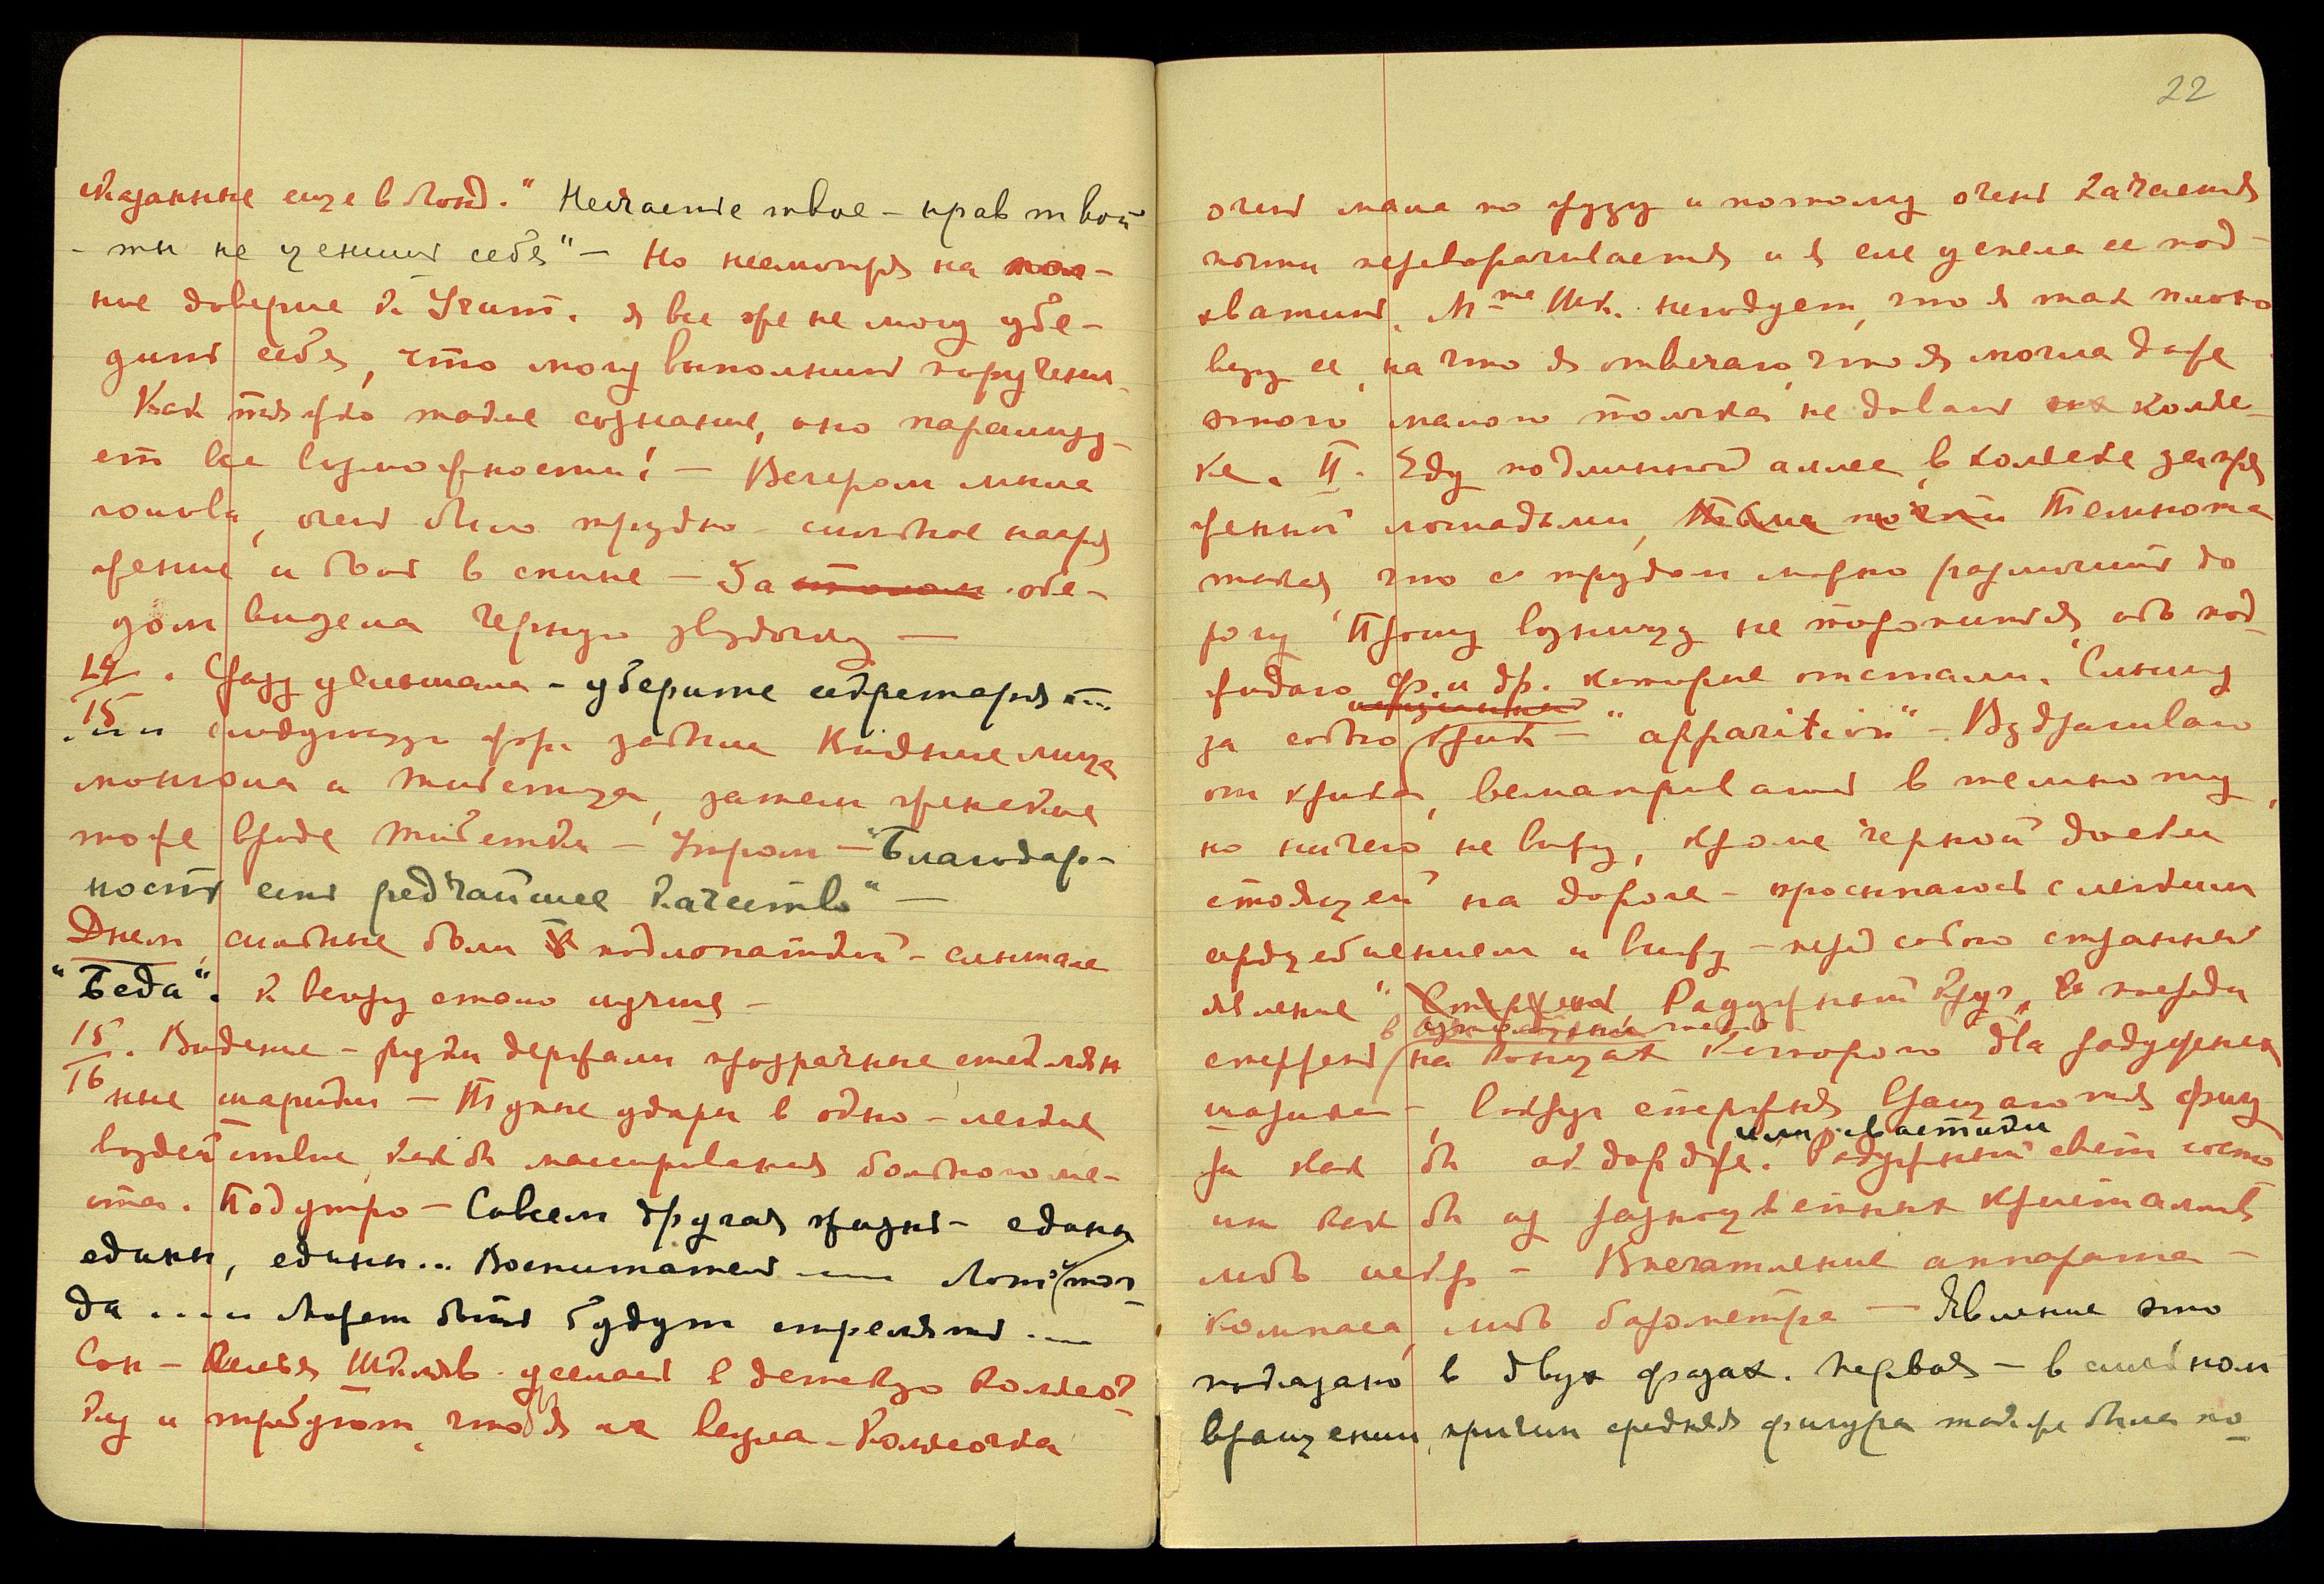 сказанные еще в Лонд." Несчастье твое – нрав твой
– ты не ценишь себя" – Но несмотря на пол-
ное доверие к Учит. я все же не могу убе-
дить себя, что могу выполнить поручения.
Как тяжко такое сознание, оно парализу-
ет все возможности! – Вечером мыла
голову, очень было трудно – сильное напря
жение и боль в спине – За столом обе-
дом видела черную звездочку —
14. Сразу услышала – уберите секретаря ...
15
следующ. забыла Видные лица
монгола и тибетца, затем женские
тоже вроде тибетки – Утром – "Благодар-
ность есть редчайшее качество" —
Днем, сильные боли под лопаткой – слышала
"Беда". К вечеру стало лучше –
15. Видение – руки держали прозрачные стеклян
16 ные шарики – Тупые удары в одно – легкое
воздействие, как бы массирование больного ме-
ста. Под утро – Совсем другая жизнь – едины
едины, едины... Воспитатель —— Логи (тог-
да .... Может быть будут стрелять .—
Сон – Шкляв. уселась в детскую коляс-
ку и требуют, чтобы я их везла – Колясочка
22
очень мала по грузу и потому очень качается
почти переворачивается и я еле успела ее под-
хватить. M-me Шк. негодует, что я так плохо
везу ее, на что я отвечаю что я могла даже
этого малого толчка не давать коляс-
ке. II. Еду по длинной аллее, в коляске запря
женной лошадьми, Темнота
такая, что с трудом можно различить до
рогу Прошу возницу не торопиться, ибо под
жидаю ф. и др. которые отстали. Слышу
за собою крик – "apparition" – Вздрагиваю
от крика, всматриваюсь в темноту,
но ничего не вижу, кроме черной доски
стоящей на дороге – просыпаюсь с легким
сердцебиением и вижу – перед собою странное
явление", Радужный круг, в середи
в
стержень на концах которого два радужных
шарика – Вокруг стержня вращаются фигу
или свастики
ры как бы . Радужный свет состо
ит как бы из разноцветных кристаллов
либо искр – Впечатление аппарата –
компаса, либо барометра — Явление это
показано в двух фазах. Первая – в сильном
вращении, причем средняя фигура также была по-